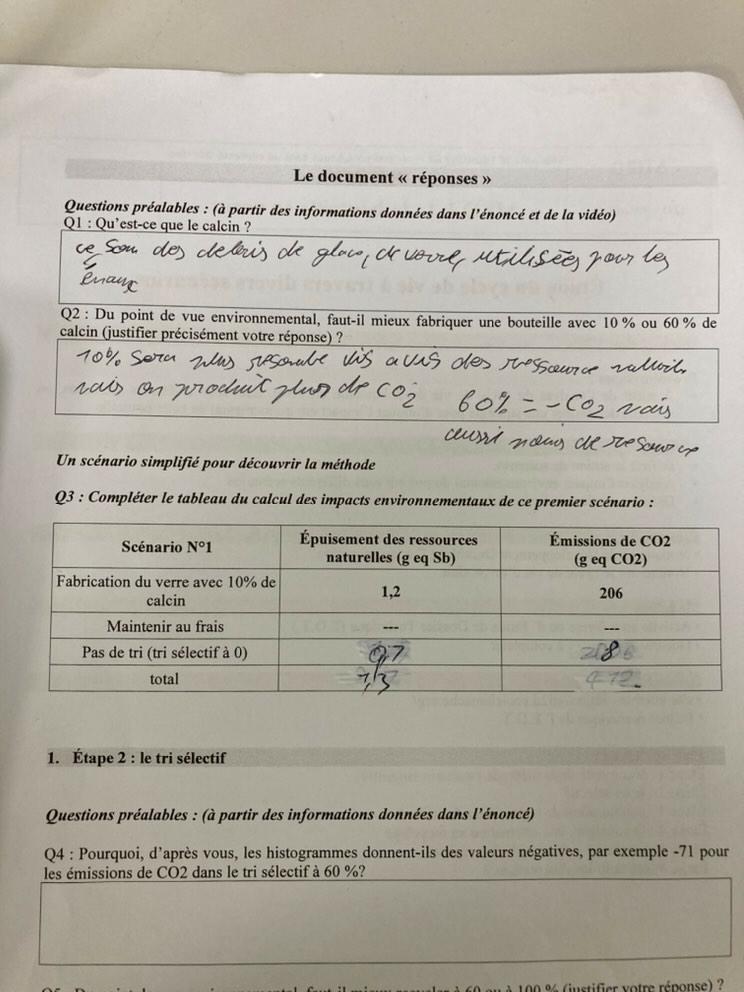 Le document « réponses »
Questions préalables : (à partir des informations données dans l'énoncé et de la vidéo)
Q1 : Qu'est-ce que le calcin ?
ce son des debris de glace, de verre, utilisées pour les
émaux
Q2 : Du point de vue environnemental, faut-il mieux fabriquer une bouteille avec 10 % ou 60 % de
calcin (justifier précisément votre réponse) ?
10% sera plus vis a vis des ressource
mais on produit plus de CO2 60% = - CO2 mais
aussi moins de resource
Un scénario simplifié pour découvrir la méthode
Q3 : Compléter le tableau du calcul des impacts environnementaux de ce premier scénario :
Scénario N°1 Épuisement des ressources naturelles (g eq Sb) Émissions de CO2 (g eq CO2)
Fabrication du verre avec 10% de calcin 1,2 206
Maintenir au frais --- ---
Pas de tri (tri sélectif à 0) 8
total
1. Étape 2 : le tri sélectif
Questions préalables : (à partir des informations données dans l'énoncé)
Q4 : Pourquoi, d'après vous, les histogrammes donnent-ils des valeurs négatives, par exemple -71 pour
les émissions de CO2 dans le tri sélectif à 60 %?
faut-il mieux recycler à 60 ou à 100 % (justifier votre réponse) ?